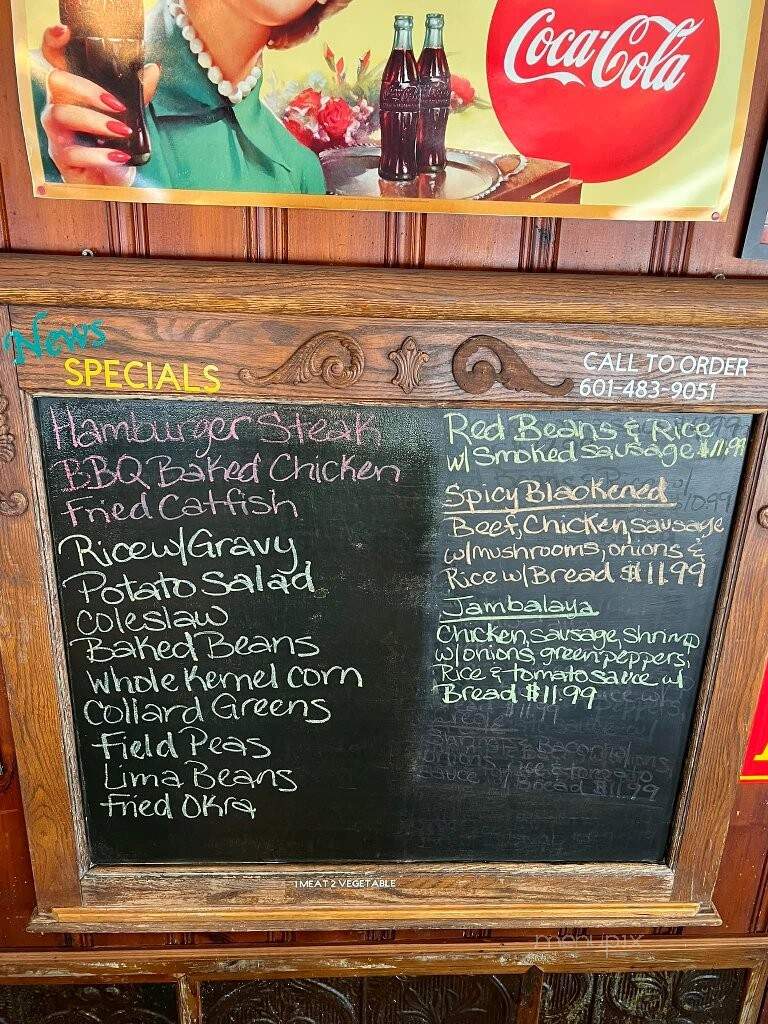 Coca-Cola
News
SPECIALS
CALL TO ORDER
601-483-9051
Hamburger Steak
BBQ Baked Chicken
Fried Catfish
Rice w/Gravy
Potato Salad
Coleslaw
Baked Beans
Whole Kernel Corn
Collard Greens
Field Peas
Lima Beans
Fried Okra
Red Beans & Rice
w/ Smoked sausage $11.99
Spicy Blackened
Beef, Chicken, sausage
w/mushrooms, onions &
Rice w/Bread $11.99
Jambalaya
Chicken, sausage, Shrimp
w/onions, green peppers,
Rice & tomato sauce w/
Bread $11.99
1 MEAT 2 VEGETABLE
menupix